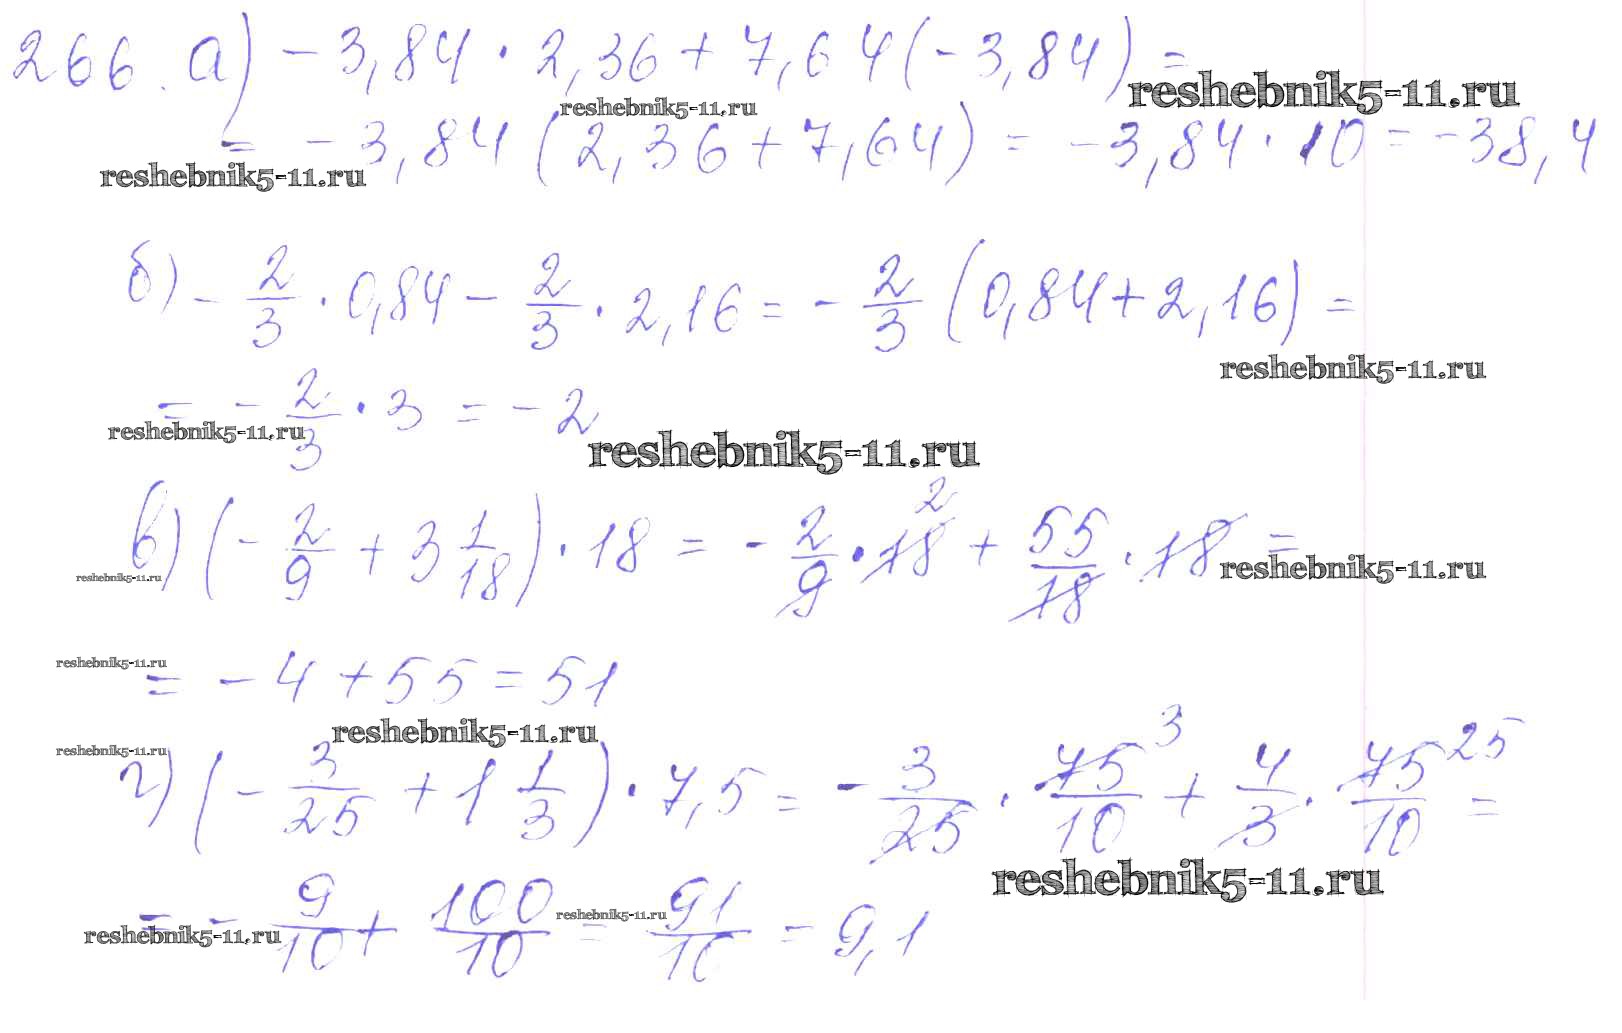 266. а) - 3,84 · 2,36 + 7,64 (-3,84) =
reshebnik5-11.ru
reshebnik5-11.ru
= - 3,84 (2,36 + 7,64) = -3,84 · 10 = -38,4
reshebnik5-11.ru
б) - 2/3 · 0,84 - 2/3 · 2,16 = - 2/3 (0,84 + 2,16) =
reshebnik5-11.ru
= - 2/3 · 3 = -2
reshebnik5-11.ru
reshebnik5-11.ru
в) (- 2/9 + 3 1/18) · 18 = - 2/9 · 18 2 + 55/18 · 18 =
reshebnik5-11.ru
reshebnik5-11.ru
reshebnik5-11.ru
= - 4 + 55 = 51
reshebnik5-11.ru
reshebnik5-11.ru
г) (- 3/25 + 1 1/3) · 7,5 = - 3/25 · 75/10 3 + 4/3 · 75/10 25 =
reshebnik5-11.ru
= - 9/10 + 100/10 = 91/10 = 9,1
reshebnik5-11.ru
reshebnik5-11.ru